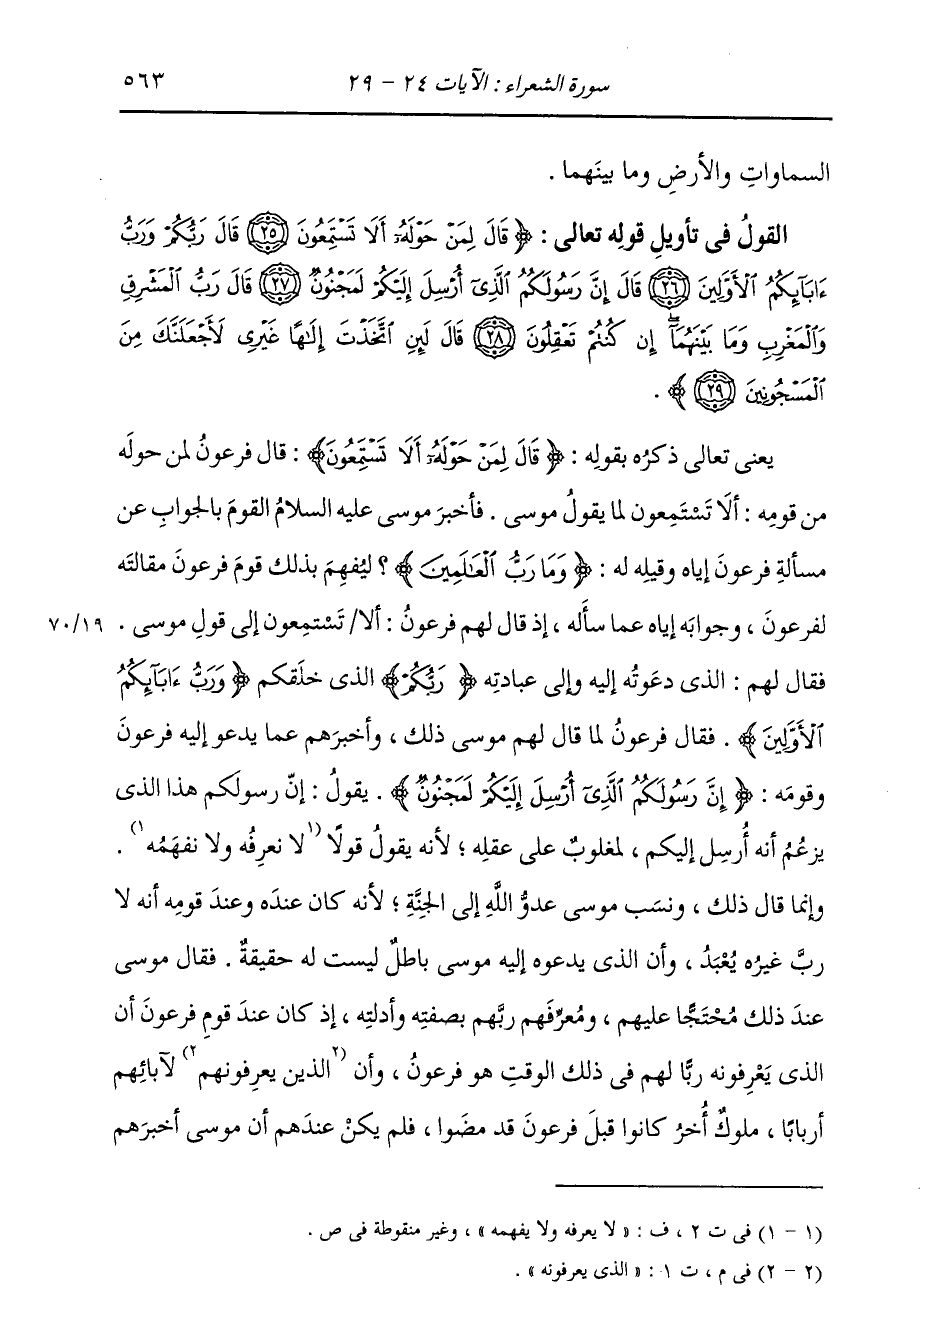 سورة الشعراء : الآيات ٢٤ - ٢٩ ٥٦٣
السماواتِ والأرضِ وما بينَهما .
القولُ فى تأويلِ قولِه تعالى : ﴿ قَالَ لِمَنْ حَوْلَهُۥٓ أَلَا تَسْتَمِعُونَ ٢٥ قَالَ رَبُّكُمْ وَرَبُّ
ءَابَآئِكُمُ ٱلْأَوَّلِينَ ٢٦ قَالَ إِنَّ رَسُولَكُمُ ٱلَّذِىٓ أُرْسِلَ إِلَيْكُمْ لَمَجْنُونٌ ٢٧ قَالَ رَبُّ ٱلْمَشْرِقِ
وَٱلْمَغْرِبِ وَمَا بَيْنَهُمَآ إِن كُنتُمْ تَعْقِلُونَ ٢٨ قَالَ لَئِنِ ٱتَّخَذْتَ إِلَٰهًا غَيْرِى لَأَجْعَلَنَّكَ مِنَ
ٱلْمَسْجُونِينَ ٢٩ ﴾ .
يعنى تعالى ذكرُه بقولِه : ﴿ قَالَ لِمَنْ حَوْلَهُۥٓ أَلَا تَسْتَمِعُونَ﴾ : قال فرعونُ لمن حولَه
من قومِه : ألَا تَسْتَمِعون لما يقولُ موسى . فأخبرَ موسى عليه السلامُ القومَ بالجوابِ عن
مسألةِ فرعونَ إياه وقيلِه له : ﴿ وَمَا رَبُّ ٱلْعَٰلَمِينَ ﴾ ؟ ليُفهِمَ بذلك قومَ فرعونَ مقالتَه
لفرعونَ ، وجوابَه إياه عما سأله ، إذ قال لهم فرعونُ : ألا/ تَسْتمِعون إلى قولِ موسى . ٧٠/١٩
فقال لهم : الذى دعَوتُه إليه وإلى عبادتِه ﴿ رَبُّكُمْ﴾ الذى خلَقكم ﴿ وَرَبُّ ءَابَآئِكُمُ
ٱلْأَوَّلِينَ ﴾ . فقال فرعونُ لما قال لهم موسى ذلك ، وأخبرَهم عما يدعو إليه فرعونَ
وقومَه : ﴿ إِنَّ رَسُولَكُمُ ٱلَّذِىٓ أُرْسِلَ إِلَيْكُمْ لَمَجْنُونٌ ﴾ . يقولُ : إنّ رسولَكم هذا الذى
يزعُمُ أنه أُرسِل إليكم ، لمغلوبٌ على عقلِه ؛ لأنه يقولُ قولًا (١لا نعرِفُه ولا نفهَمُه١) .
وإنما قال ذلك ، ونسَب موسى عدوُّ اللَّهِ إلى الجِنَّةِ ؛ لأنه كان عندَه وعندَ قومِه أنه لا
ربَّ غيرُه يُعْبَدُ ، وأن الذى يدعوه إليه موسى باطلٌ ليست له حقيقةٌ . فقال موسى
عندَ ذلك مُحْتَجًّا عليهم ، ومُعرِّفَهم ربَّهم بصفتِه وأدلتِه ، إذ كان عندَ قومِ فرعونَ أن
الذى يَعْرِفونه ربًّا لهم فى ذلك الوقتِ هو فرعونُ ، وأن (٢الذين يعرِفونهم٢) لآبائِهم
أربابًا ، ملوكٌ أُخرُ كانوا قبلَ فرعونَ قد مضَوا ، فلم يكنْ عندَهم أن موسى أخبرَهم
(١ - ١) فى ت ٢ ، ف : « لا يعرفه ولا يفهمه » ، وغير منقوطة فى ص .
(٢ - ٢) فى م ، ت ١ : « الذى يعرفونه » .